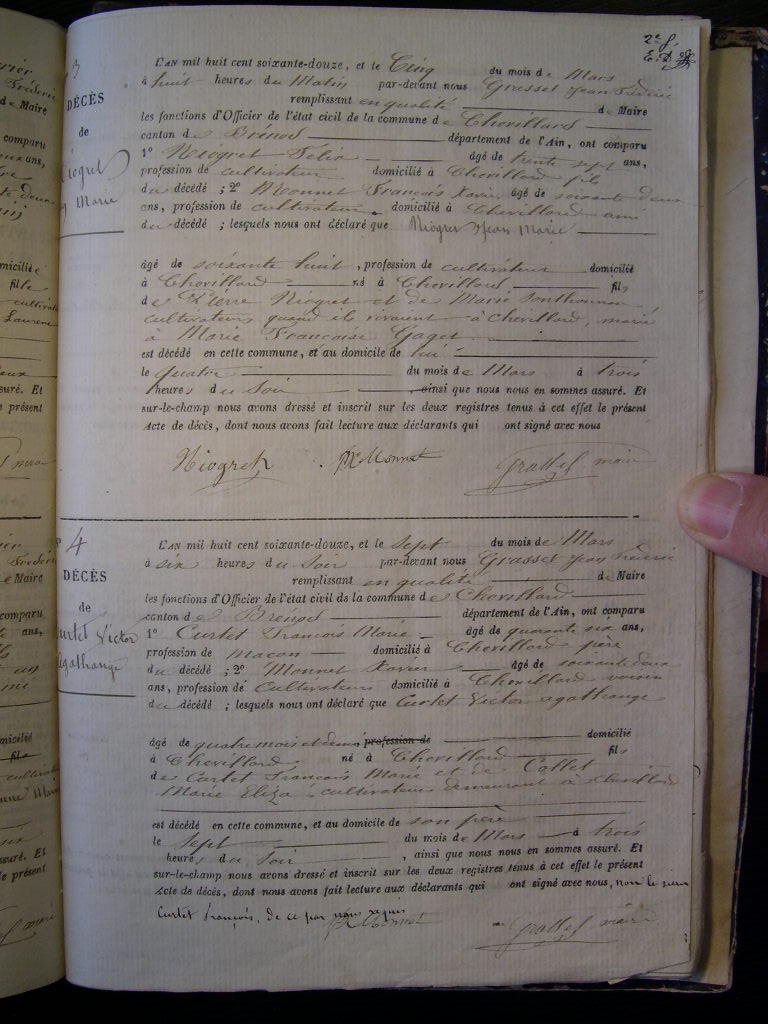 2e f.
N° 3
DÉCÈS
de
Niogret
Jean Marie
L'AN mil huit cent soixante-douze, et le Cinq du mois de Mars
à huit heures du Matin par-devant nous Grasset Jean Fréderic
remplissant en qualité de Maire
les fonctions d'Officier de l'état civil de la commune de Chevillard
canton de Brénod département de l'Ain, ont comparu
1° Niogret Felix âgé de trente sept ans,
profession de cultivateur domicilié à Chevillard fils
du décédé ; 2° Monnet François Xavier âgé de soixante deux
ans, profession de cultivateur domicilié à Chevillard ami
du décédé ; lesquels nous ont déclaré que Niogret Jean Marie
âgé de soixante huit, profession de cultivateur domicilié
à Chevillard né à Chevillard fils
de Pierre Niogret et de Marie Sonthonnax
cultivateurs quand ils vivaient à Chevillard, marié
à Marie Françoise Gaget
est décédé en cette commune, et au domicile de lui
le quatre du mois de Mars à trois
heures du Soir ainsi que nous nous en sommes assuré. Et
sur-le-champ nous avons dressé et inscrit sur les deux registres tenus à cet effet le présent
Acte de décès, dont nous avons fait lecture aux déclarants qui ont signé avec nous
Niogret fx Monnet Grasset maire
N° 4
DÉCÈS
de
Curtet Victor
Agathange
L'AN mil huit cent soixante-douze, et le Sept du mois de Mars
à six heures du Soir par-devant nous Grasset Jean Fréderic
remplissant en qualité de Maire
les fonctions d'Officier de l'état civil de la commune de Chevillard
canton de Brénod département de l'Ain, ont comparu
1° Curtet François Marie âgé de quarante six ans,
profession de macon domicilié à Chevillard père
du décédé ; 2° Monnet Xavier âgé de soixante deux
ans, profession de Cultivateur domicilié à Chevillard voisin
du décédé ; lesquels nous ont déclaré que Curtet Victor agathange
âgé de quatre mois et demi profession de domicilié
à Chevillard né à Chevillard fils
de Curtet François Marie et de Collet
Marie Eliza cultivateurs demeurant à Chevillard
est décédé en cette commune, et au domicile de son père
le Sept du mois de Mars à trois
heures du Soir, ainsi que nous nous en sommes assuré. Et
sur-le-champ nous avons dressé et inscrit sur les deux registres tenus à cet effet le présent
Acte de décès, dont nous avons fait lecture aux déclarants qui ont signé avec nous, non le sieur
Curtet françois, de ce par nous requis
fx Monnet Grasset maire